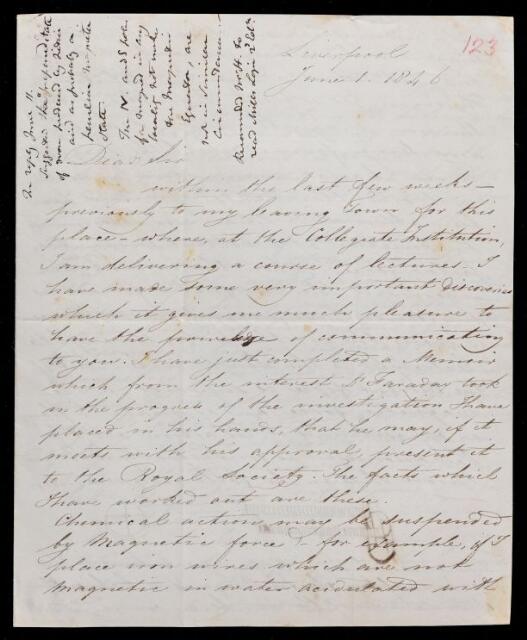 123
Liverpool
June 1. 1846
Dear Sir
within the last few weeks –
previously to my leaving Town for this
place – where, at the Collegiate Institution,
I am delivering a course of lectures. I
have made some very important discoveries
which it gives me much pleasure to
have the privilege of communicating
to you. I have just completed a Memoir
which from the interest Dr Faraday took
in the progress of the investigation I have
placed in his hands, that he may, if it
meets with his approval, present it
to the Royal Society. The facts which
I have worked out are these.
Chemical action may be suspended
by Magnetic force – for example, if I
place iron wires which are not
magnetic in water acidulated with
In reply June 11.
Suggested that precipitate
of iron produced by
and is probably in
peculiar magnetic
state
The N. and S. pole
of a magnet in any
locality not under
the Magnetic
Equator, are
not in similar
circumstances.
Recommended Mr H. to
read